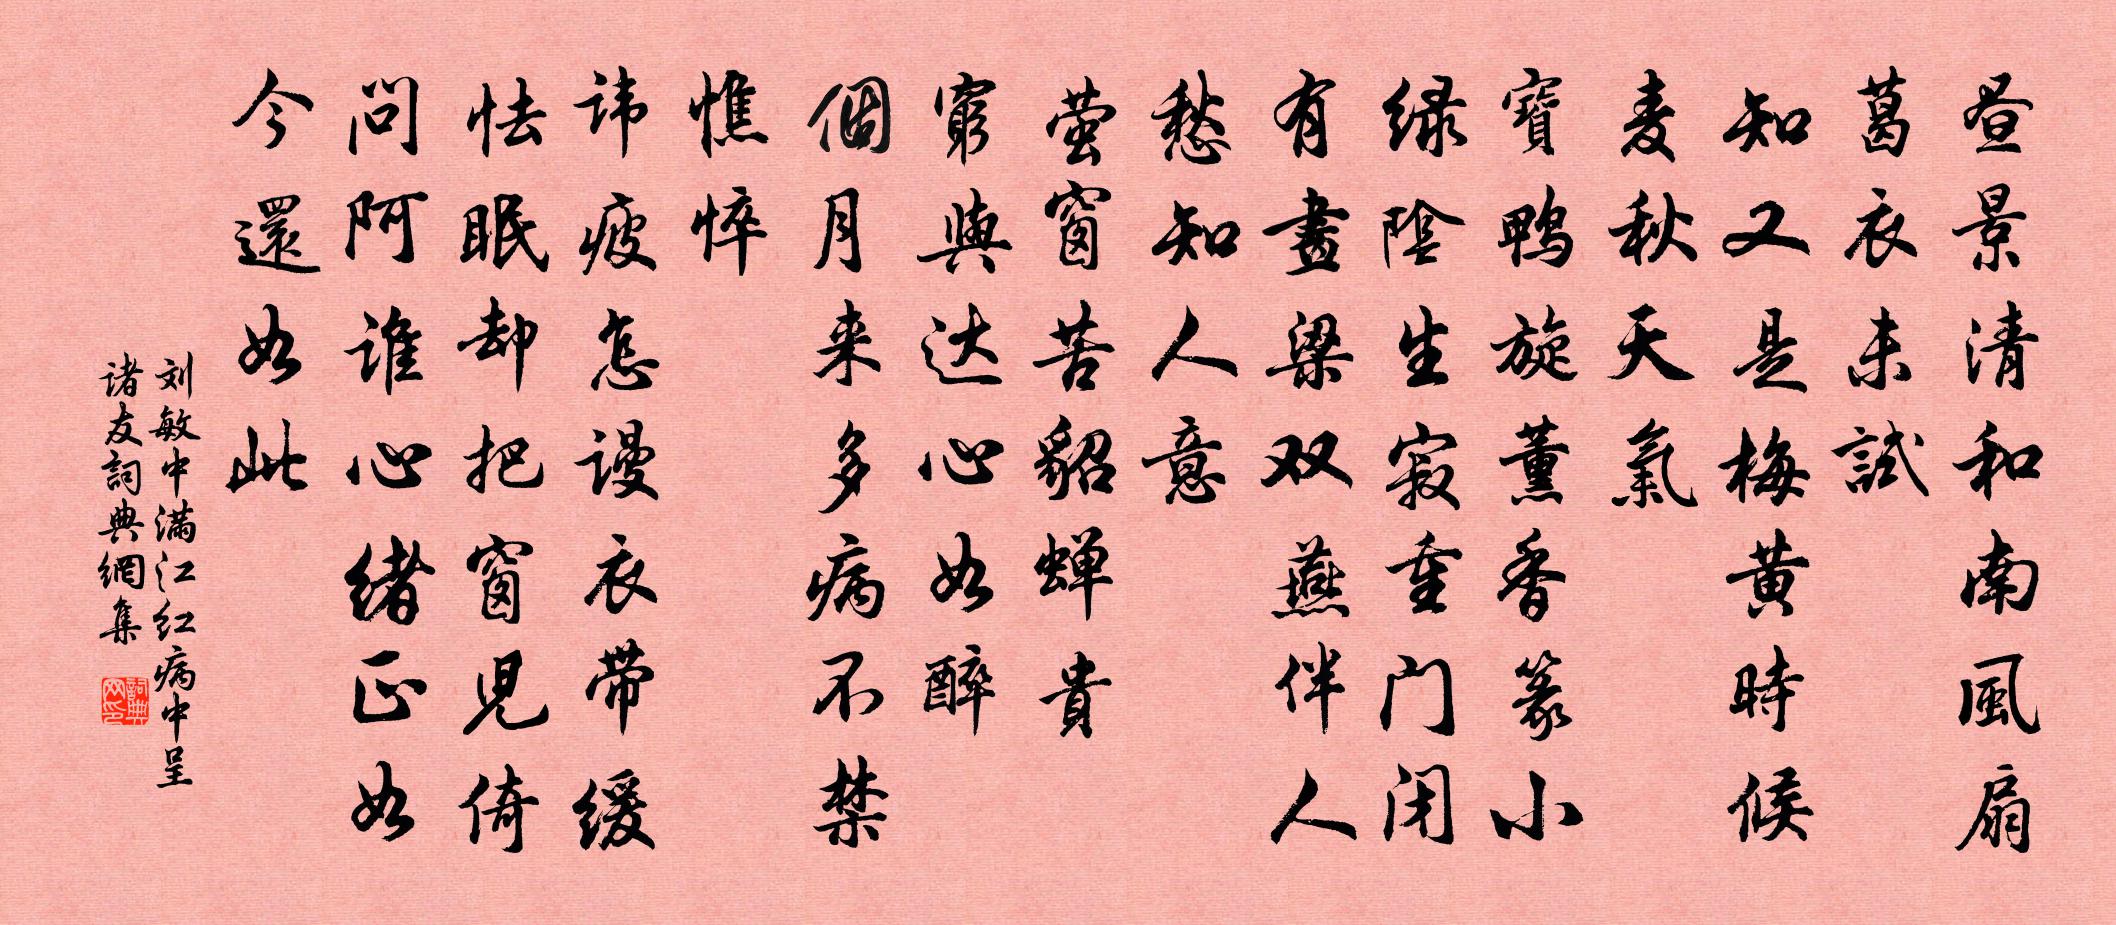 昼景清和南風扇
葛衣未試
知又是梅黄時候
麦秋天氣
寶鴨旋薰香篆小
緑陰生寂重门闭
有畫梁双燕伴人
愁知人意
萤窗苦貂蝉貴
窮與达心如醉
個月来多病不禁
憔悴
讳疲怎谩衣带缓
怯眠却把窗児倚
问阿谁心緒正如
今還如此
刘敏中满江红病中呈
诸友詞典網集
詞典网印